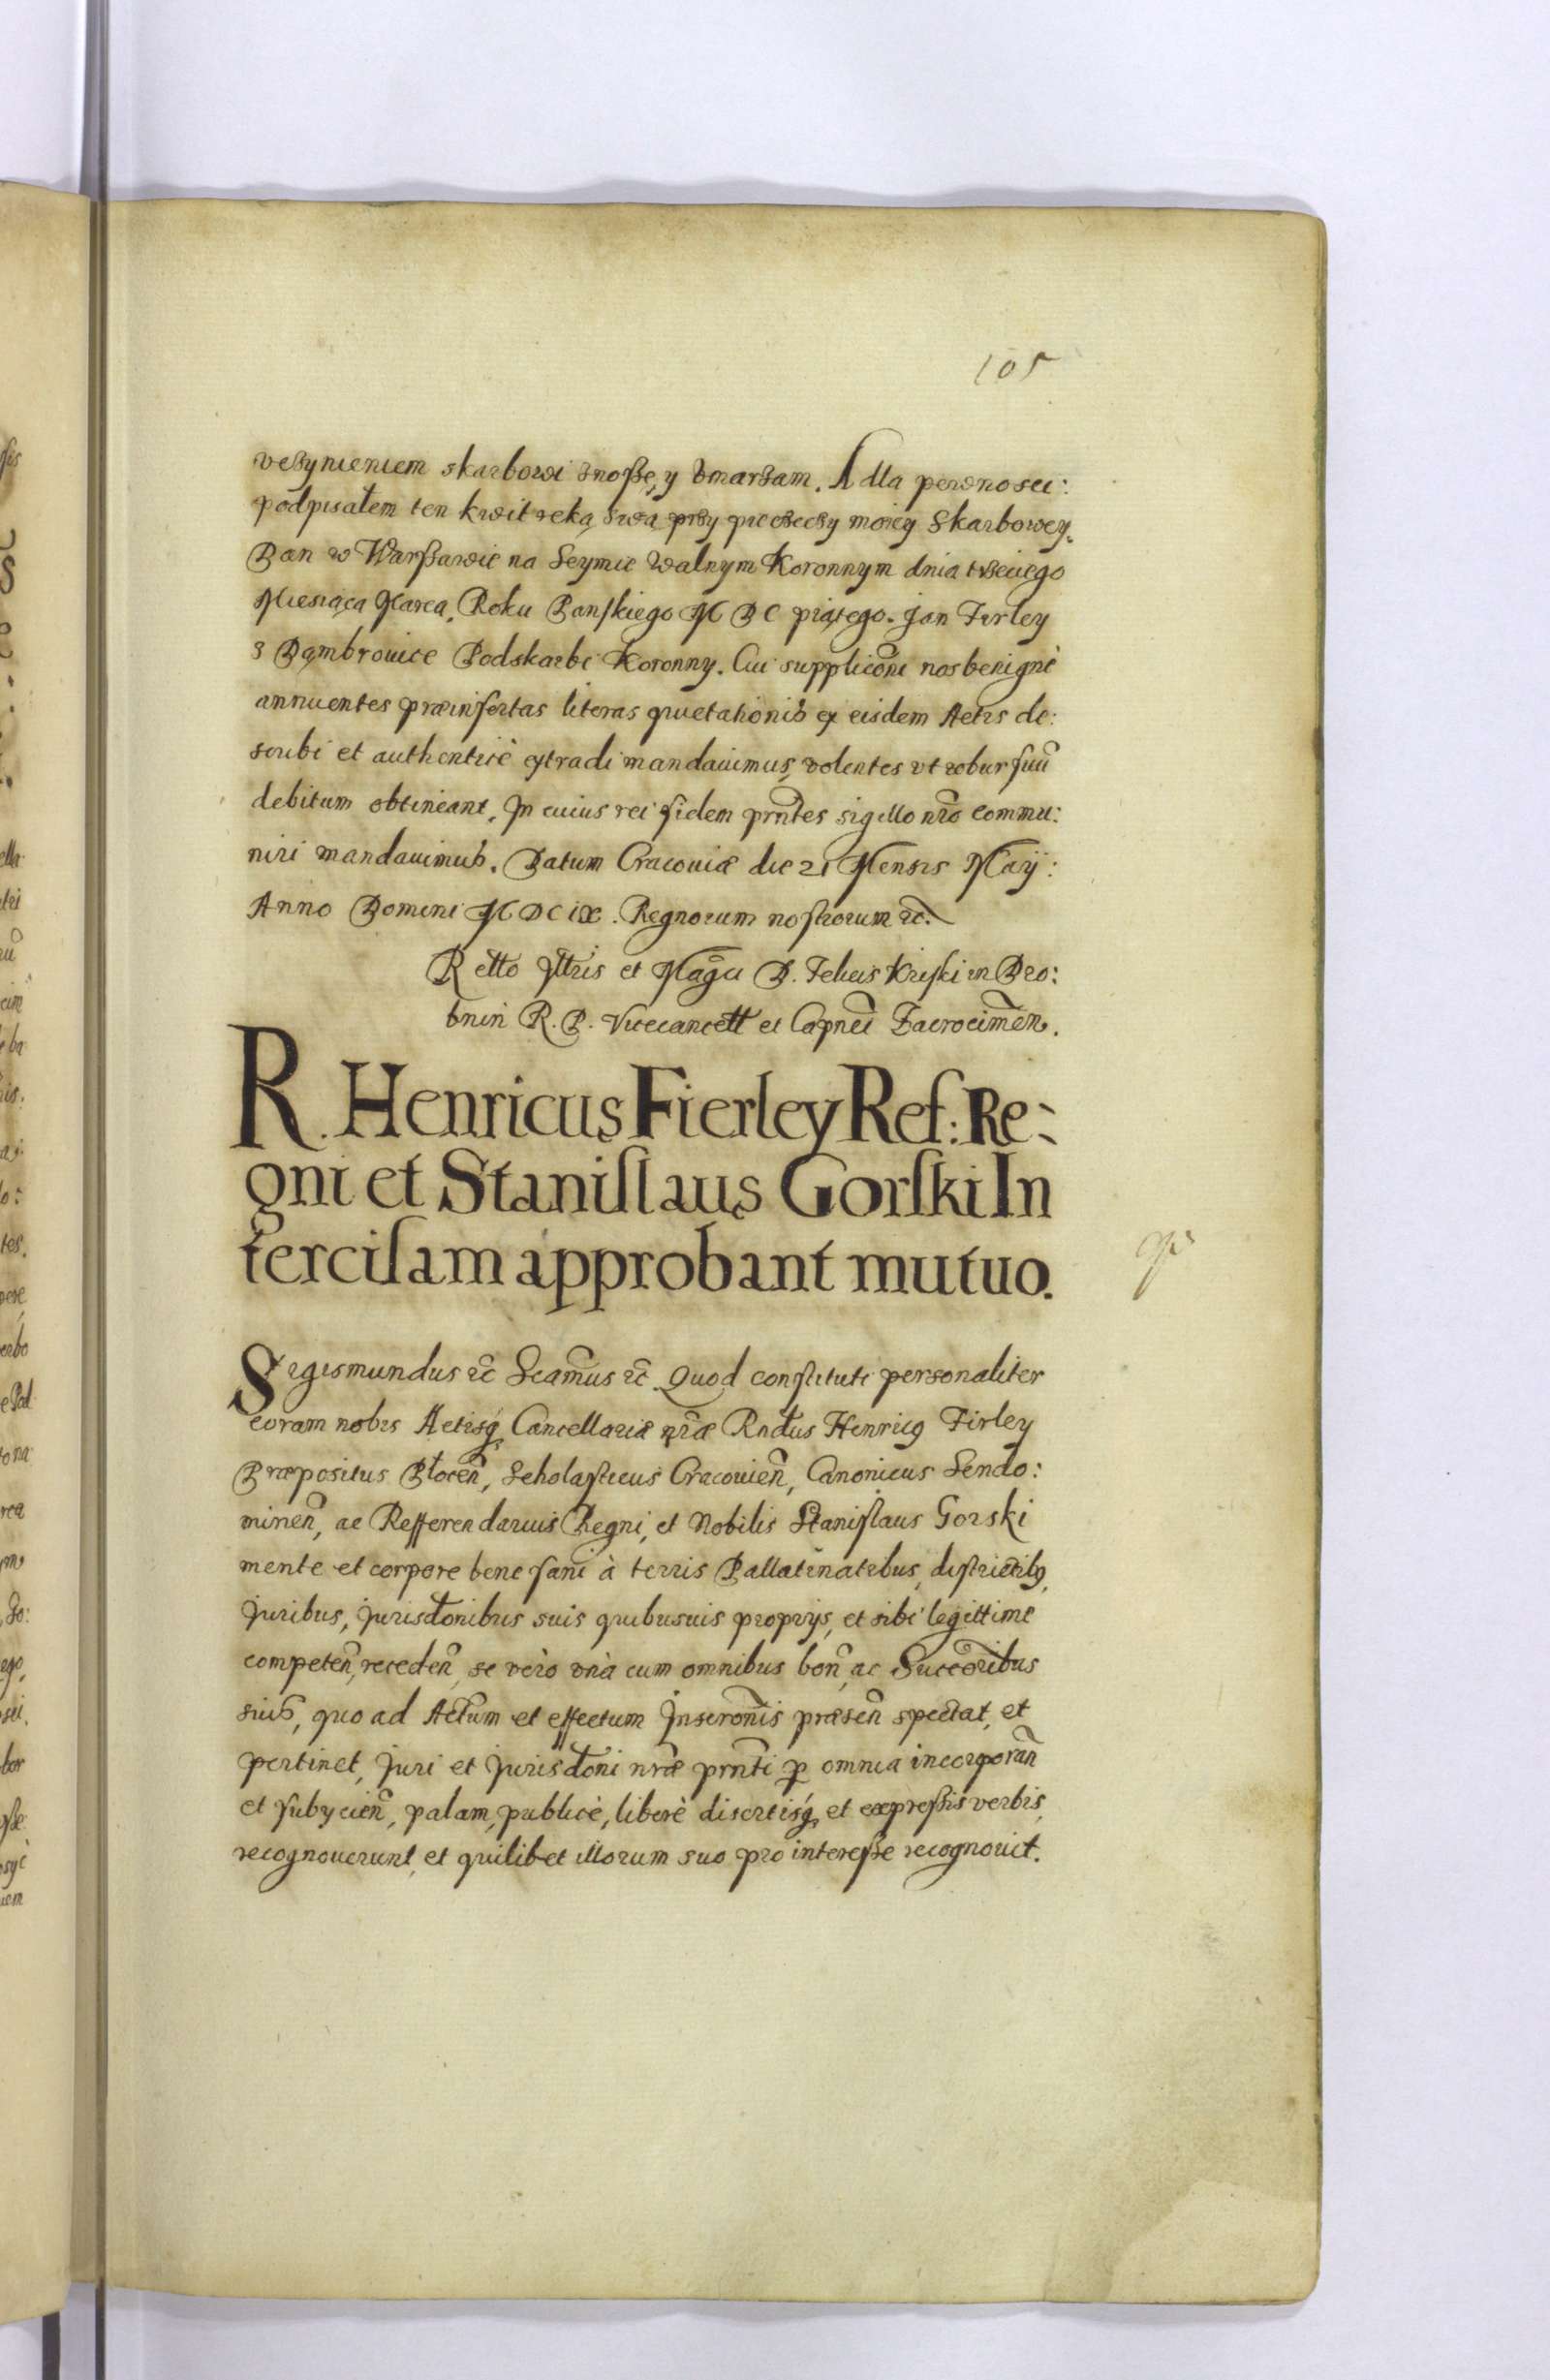 105
vczynieniem skarbowi znoszę y vmarzam. A dla pewnosci:
podpisałem ten kwit ręką swą przy pieczęczy moiey Skarbowey.
Dan w Warszawie na Seymie Walnym Koronnym dnia trzeciego
Miesiąca Marca, Roku Panskiego MDC piątego. Jan Firley
z Dąmbrowice Podskarbi Koronny. Cui supplicõni nos benignè
annuentes præinsertas literas quietationis ex eisdem Actis de:
scribi et authenticè extradi mandauimus, volentes vt robur suũ
debitum obtineant. In cuius rei fidem prñtes sigillo nrõ commu:
niri mandauimus. Datum Cracouiæ die 21 Mensis Maij:
Anno Domini MDCix. Regnorum nostrorum ʀc.
Rełło Jłłris et Magci D. Felicis Kriski in Dro:
bnin R. P. Vicecancełł et Capnei Zacrocimeñ.
R. Henricus Fierley Ref: Re:
gni et Stanislaus Gorski In
tercisam approbant mutuo.
Sigismundus ʀc Seamus ʀc Quod constituti personaliter
coram nobis Actisq́ Cancellariæ nræ Rndus Henricꝰ Firley
Præpositus Płoceñ, Scholasticus Cracouieñ, Canonicus Sendo:
mirieñ, ac Refferendarius Regni, et Nobilis Stanislaus Gorski
mente et corpore bene sani à terris Pallatinatibus, districtibꝰ,
Juribus, Jurisdtonibus suis quibusuis proprijs, et sibi legittime
competeñ, recedeñ, se vèro vnà cum omnibus boñ, ac Succoribus
suis, quo ad Actum et effectum Jnscronis præseñ spectat, et
pertinet, Juri et Jurisdtoni nræ prñti ꝑ omnia incorporañ
et subycieñ, palam, publicè, liberè disertisq́ et expressis verbis,
recognouerunt, et quilibet illorum suo pro interesse recognouit.